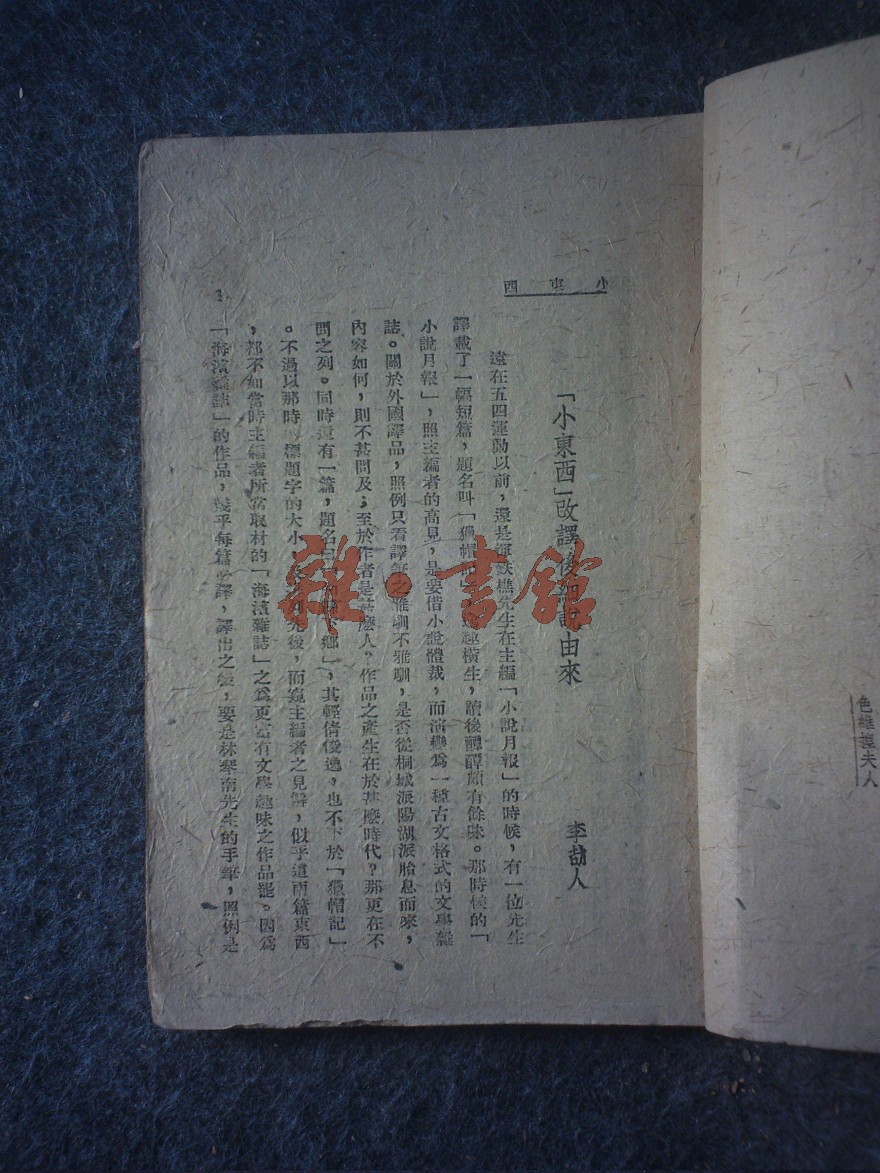 小東西
「小東西」改譯後細說由來
李劼人
遠在五四運動以前，還是惲鉄樵先生在主編「小說月報」的時候，有一位先生
譯載了一幅短篇，題名叫「獵帽記」趣橫生，讀後醰醰頗有餘味。那時候的「
小說月報」，照主編者的高見，是要借小說體裁，而演變爲一種古文格式的文學雜
誌。關於外國譯品，照例只看譯筆之雅馴不雅馴，是否從桐城派陽湖派胎息而來，
內容如何，則不甚問及；至於作者是甚麼人？作品之產生在於甚麼時代？那更在不
問之列。同時還有一篇，題名曰鄉」，其輕倩俊逸，也不下於「獵帽記」
。不過以那時標題字的大小，先後，而窺主編者之見解，似乎這兩篇東西
，都不如當時主編者所常取材的「海濱雜誌」之爲更富有文學趣味之作品罷。因爲
「海濱雜誌」的作品，幾乎每篇必譯，譯出之後，要是林琴南先生的手筆，照例是
雜·書館
色維揚夫人